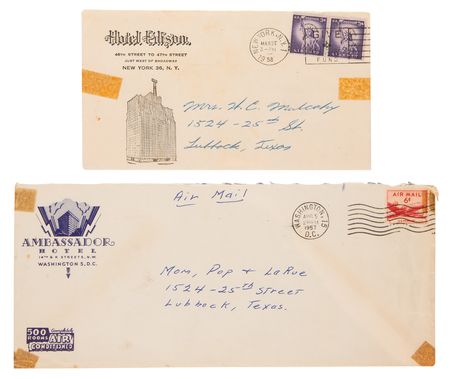 Hotel Edison
46TH STREET TO 47TH STREET
JUST WEST OF BROADWAY
NEW YORK 36, N. Y.
NEW YORK, N.Y.
1958
FUND
Mrs. H. C. Mulcahy
1524-25th St.
Lubbock, Texas
Air Mail
AMBASSADOR
HOTEL
14TH & K STREETS, N.W.
WASHINGTON 5, D.C.
WASHINGTON, 13
AUG 5
1957
D.C.
AIR MAIL
6¢
Mom, Pop + LaRue
1524-25th Street
Lubbock, Texas.
500
ROOMS
Completely
AIR
CONDITIONED